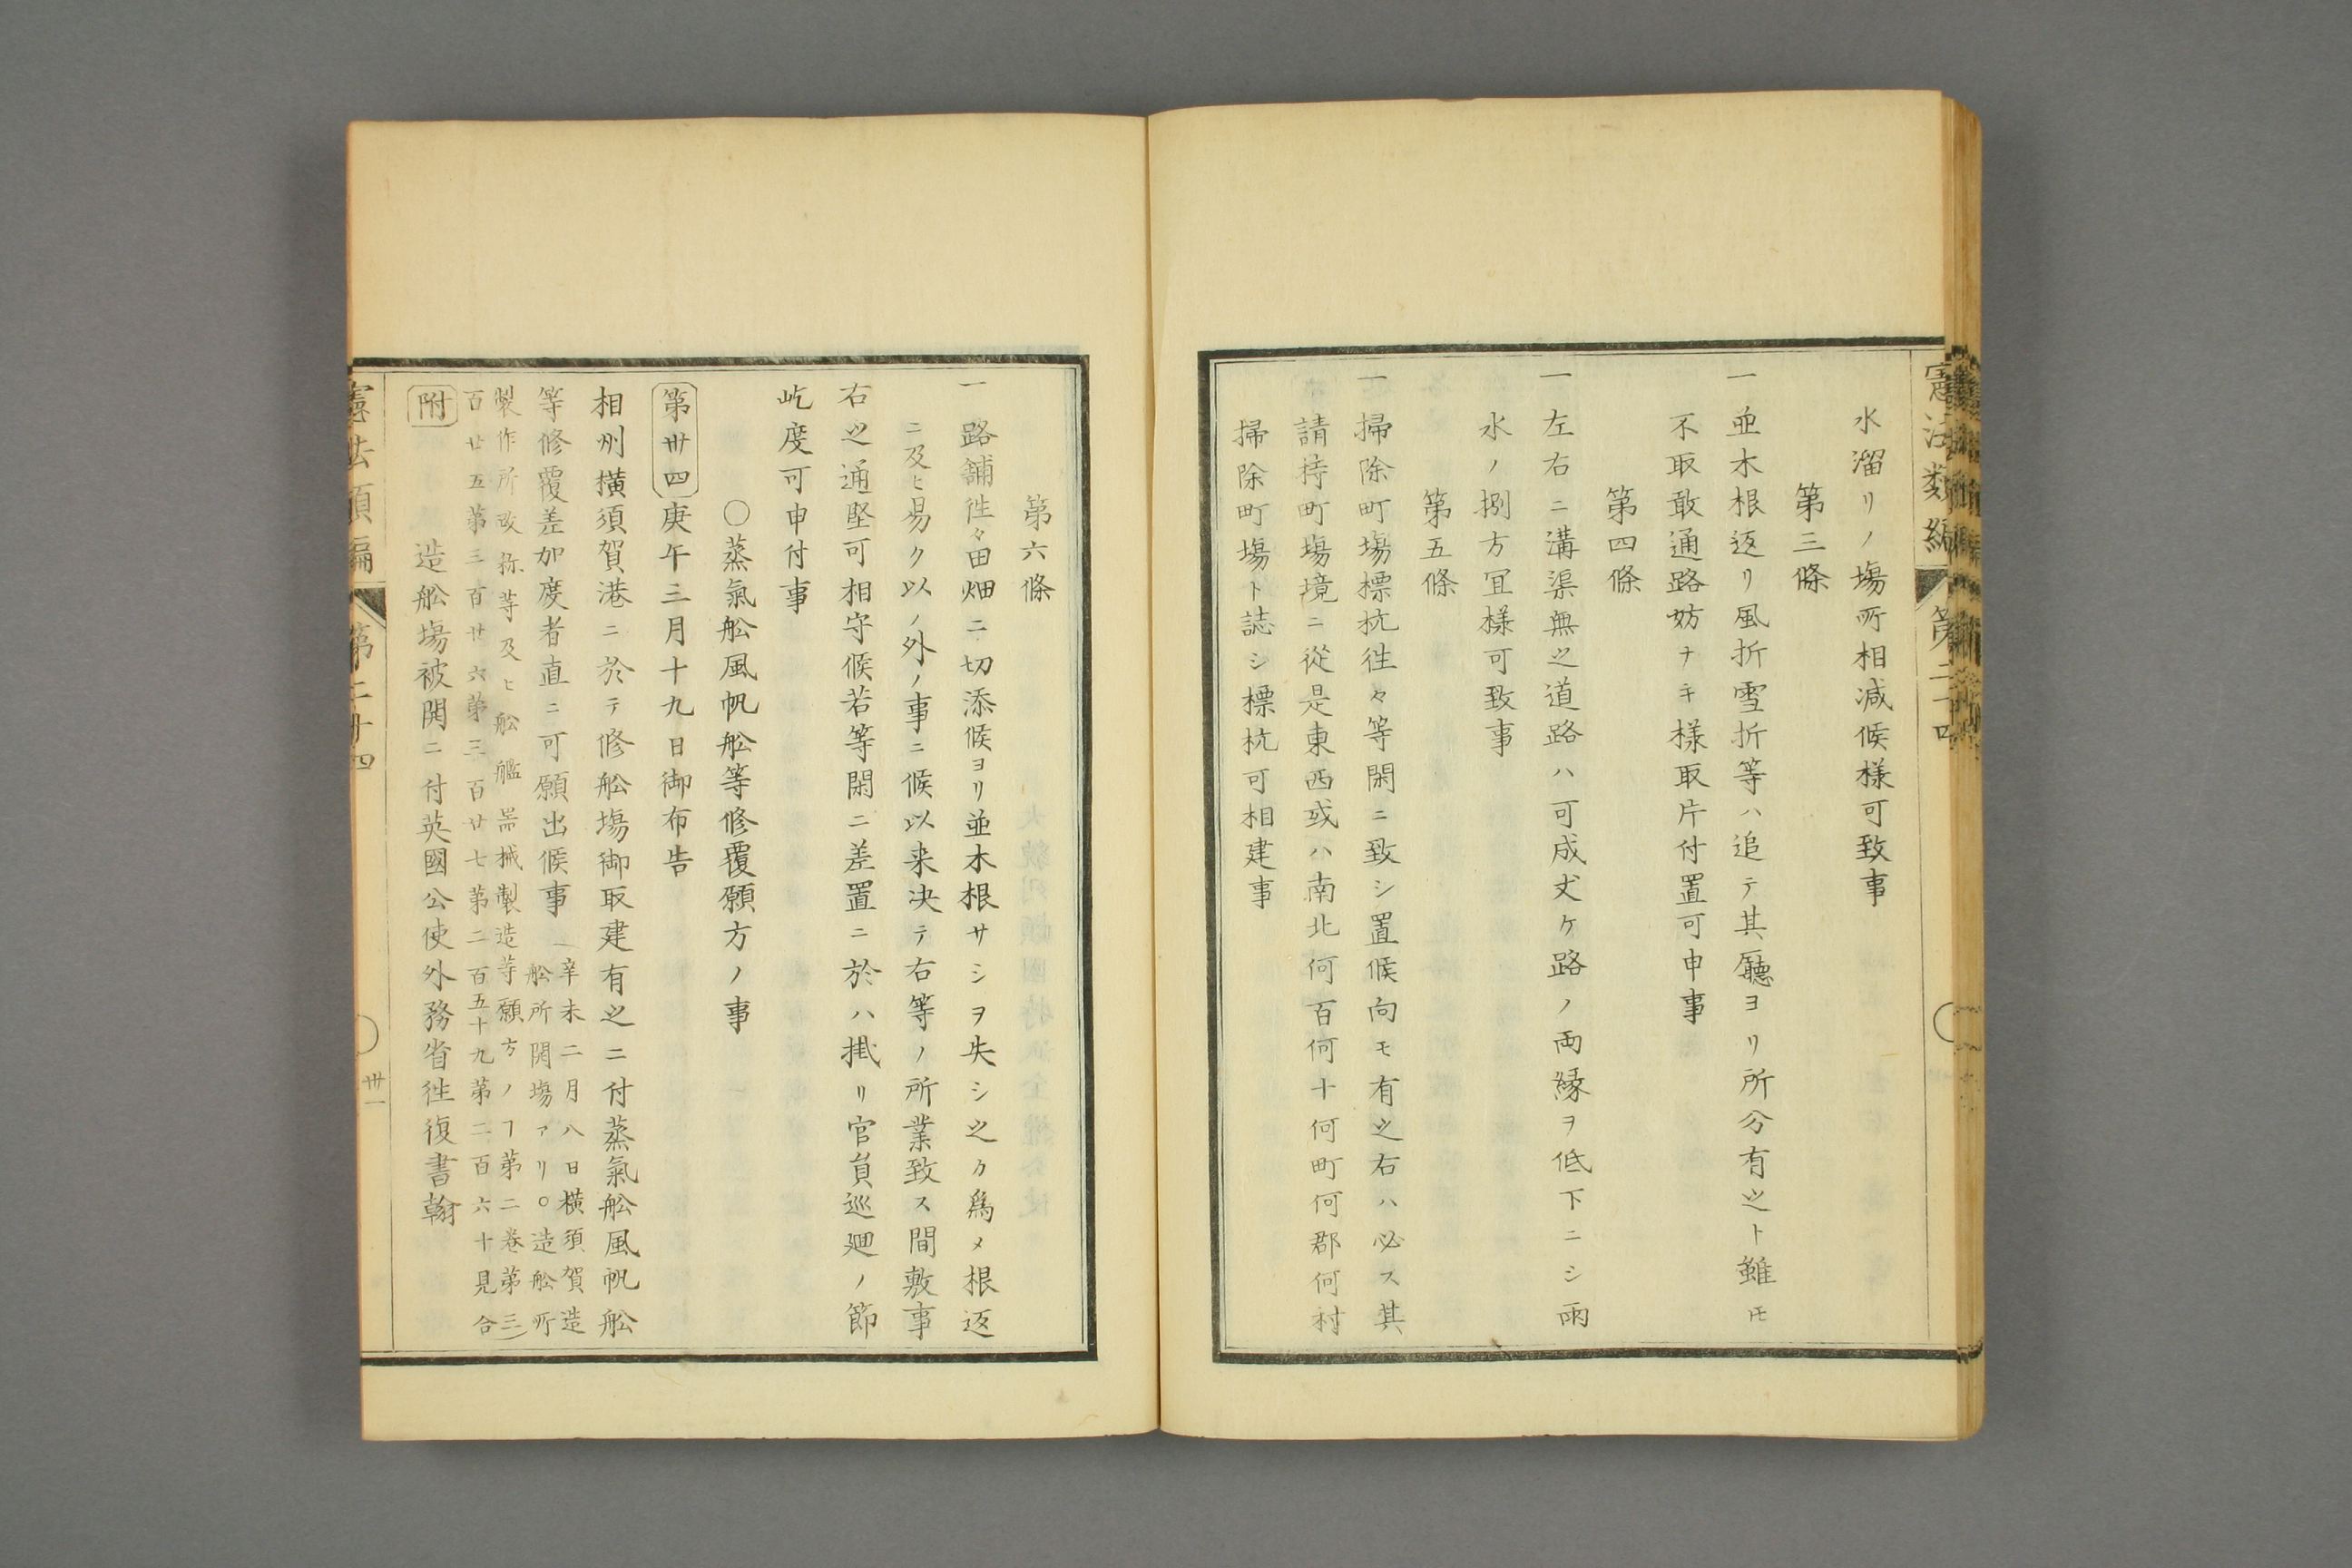 水溜リノ塲所相減候樣可致事
第三條
一並木根返リ風折雪折等ハ追テ其廳ヨリ所分有之ト雖𪜈
不取敢通路妨ナキ樣取片付置可申事
第四條
一左右ニ溝渠無之道路ハ可成丈ケ路ノ両緣ヲ低下ニシ雨
水ノ捌方冝樣可致事
第五條
一掃除町塲標杭徃々等閑ニ致シ置候向モ有之右ハ必ス其
請持町塲境ニ從是東西或ハ南北何百何十何町何郡何村
掃除町塲ト誌シ標杭可相建事
第六條
一路舗徃々田畑ニ切添候ヨリ並木根サシヲ失シ之カ爲メ根返
ニ及ヒ易ク以ノ外ノ事ニ候以来决テ右等ノ所業致ス間敷事
右之通堅可相守候若等閑ニ差置ニ於ハ掛リ官員巡廻ノ節
屹度可申付事
〇蒸氣舩風帆舩等修覆願方ノ事
第卅四庚午三月十九日御布告
相州横須賀港ニ於テ修舩塲御取建有之ニ付蒸氣舩風帆舩
等修覆差加度者直ニ可願出候事
辛未二月八日横須賀造
舩所開塲アリ○造舩所
製作所改称等及ヒ舩艦噐械製造等願方ノヿ第二巻第三
百廿五第三百廿六第三百廿七第二百五十九第二百六十見合
附
造舩塲被開ニ付英國公使外務省徃復書翰
憲法類編
第二十四
卅一